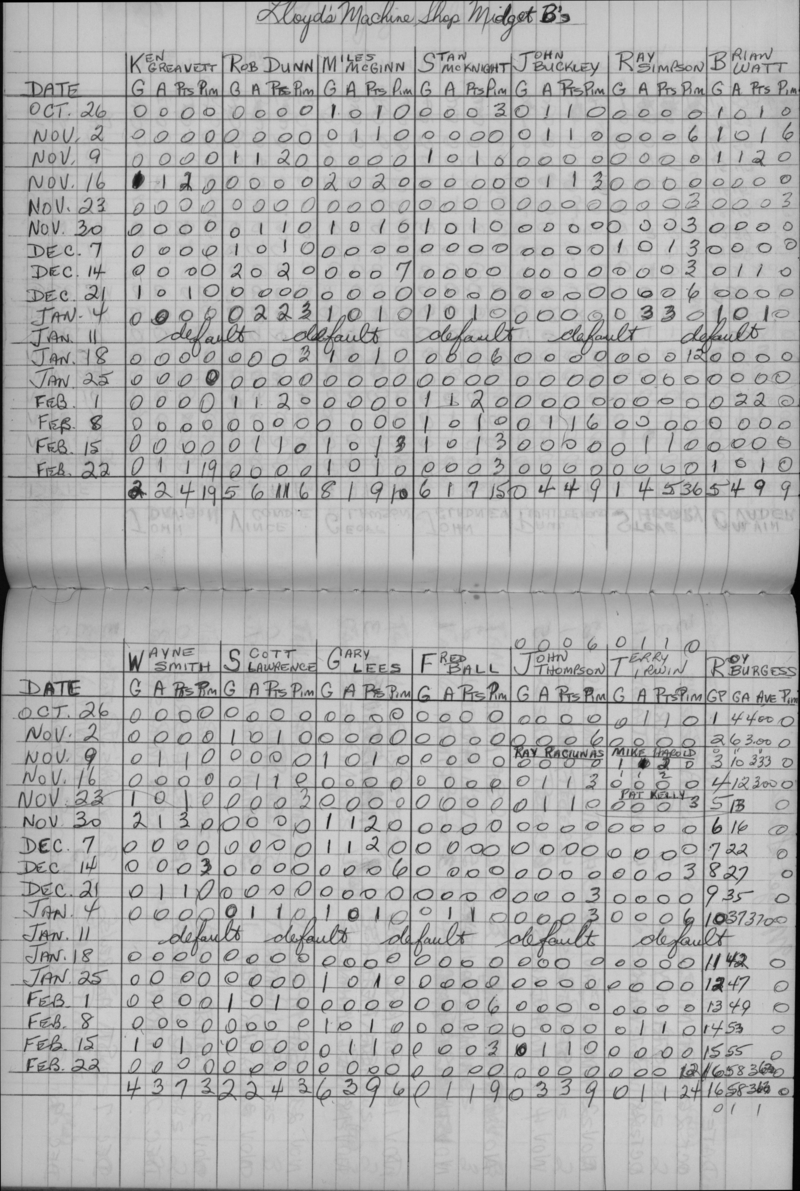 Lloyd's Machine Shop Midget B's
KEN GREAVETT ROB DUNN MILES McGINN STAN McKNIGHT JOHN BUCKLEY RAY SIMPSON BRIAN WATT
DATE G A Pts Pim G A Pts Pim G A Pts Pim G A Pts Pim G A Pts Pim G A Pts Pim G A Pts Pim
OCT. 26 0 0 0 0 0 0 0 0 1 0 1 0 0 0 0 3 0 1 1 0 0 0 0 0 1 0 1 0
NOV. 2 0 0 0 0 0 0 0 0 0 1 1 0 0 0 0 0 0 1 1 0 0 0 0 6 1 0 1 6
NOV. 9 0 0 0 0 1 1 2 0 0 0 0 0 1 0 1 0 0 0 0 0 0 0 0 0 1 1 2 0
NOV. 16 1 1 2 0 0 0 0 0 2 0 2 0 0 0 0 0 0 1 1 3 0 0 0 0 0 0 0 0
NOV. 23 0 0 0 0 0 0 0 0 0 0 0 0 0 0 0 0 0 0 0 0 0 0 0 3 0 0 0 3
NOV. 30 0 0 0 0 0 1 1 0 1 0 1 0 1 0 1 0 0 0 0 0 0 0 0 3 0 0 0 0
DEC. 7 0 0 0 0 1 0 1 0 0 0 0 0 0 0 0 0 0 0 0 0 1 0 1 3 0 0 0 0
DEC. 14 0 0 0 0 2 0 2 0 0 0 0 7 0 0 0 0 0 0 0 0 0 0 0 3 0 1 1 0
DEC. 21 1 0 1 0 0 0 0 0 0 0 0 0 0 0 0 0 0 0 0 0 0 0 0 6 0 0 0 0
JAN. 4 0 0 0 0 0 2 2 3 1 0 1 0 1 0 1 0 0 0 0 0 0 3 3 0 1 0 1 0
JAN. 11 default default default default default
JAN. 18 0 0 0 0 0 0 0 3 1 0 1 0 0 0 0 6 0 0 0 0 0 0 0 12 0 0 0 0
JAN. 25 0 0 0 0 0 0 0 0 0 0 0 0 0 0 0 0 0 0 0 0 0 0 0 0 0 0 0 0
FEB. 1 0 0 0 0 1 1 2 0 0 0 0 0 1 1 2 0 0 0 0 0 0 0 0 0 0 2 2 0
FEB. 8 0 0 0 0 0 0 0 0 0 0 0 0 1 0 1 0 0 1 1 6 0 0 0 0 0 0 0 0
FEB. 15 0 0 0 0 0 1 1 0 1 0 1 3 1 0 1 3 0 0 0 0 0 1 1 0 0 0 0 0
FEB. 22 0 1 1 19 0 0 0 0 1 0 1 0 0 0 0 3 0 0 0 0 0 0 0 0 1 0 1 0
2 2 4 19 5 6 11 6 8 1 9 10 6 1 7 15 0 4 4 9 1 4 5 36 5 4 9 9
0 0 0 6 0 1 1 0
WAYNE SMITH SCOTT LAWRENCE GARY LEES FRED BALL JOHN THOMPSON TERRY IRWIN ROY BURGESS
DATE G A Pts Pim G A Pts Pim G A Pts Pim G A Pts Pim G A Pts Pim G A Pts Pim GP GA AVE Pim
OCT. 26 0 0 0 0 0 0 0 0 0 0 0 0 0 0 0 0 0 0 0 0 0 1 1 0 1 4 4.00 0
NOV. 2 0 0 0 0 1 0 1 0 0 0 0 0 0 0 0 0 0 0 0 6 0 0 0 0 2 6 3.00 0
RAY RACIUNAS MIKE HAROLD
NOV. 9 0 1 1 0 0 0 0 0 1 0 1 0 0 0 0 0 0 0 0 0 1 2 0 3 10 333 0
NOV. 16 0 0 0 0 0 1 1 0 0 0 0 0 0 0 0 0 0 1 1 3 1 1 2 4 12 300 0
PAT KELLY
NOV. 23 1 0 1 0 0 0 0 3 0 0 0 0 0 0 0 0 0 1 1 0 0 0 0 3 5 13 0
NOV. 30 2 1 3 0 0 0 0 0 1 1 2 0 0 0 0 0 0 0 0 0 0 0 0 0 6 16 0
DEC. 7 0 0 0 0 0 0 0 0 1 1 2 0 0 0 0 0 0 0 0 0 0 0 0 0 7 22 0
DEC. 14 0 0 0 3 0 0 0 0 0 0 0 6 0 0 0 0 0 0 0 0 0 0 0 3 8 27 0
DEC. 21 0 1 1 0 0 0 0 0 0 0 0 0 0 0 0 0 0 0 0 3 0 0 0 0 9 35 0
JAN. 4 0 0 0 0 0 1 1 0 1 0 1 0 0 1 1 0 0 0 0 3 0 0 0 6 10 37 370 0
JAN. 11 default default default default default
JAN. 18 0 0 0 0 0 0 0 0 0 0 0 0 0 0 0 0 0 0 0 0 0 0 0 0 11 42 0
JAN. 25 0 0 0 0 0 0 0 0 1 0 1 0 0 0 0 0 0 0 0 0 0 0 0 0 12 47 0
FEB. 1 0 0 0 0 1 0 1 0 0 0 0 0 0 0 0 6 0 0 0 0 0 0 0 0 13 49 0
FEB. 8 0 0 0 0 0 0 0 0 1 0 1 0 0 0 0 0 0 0 0 0 0 1 1 0 14 53 0
FEB. 15 1 0 1 0 0 0 0 0 0 1 1 0 0 0 0 3 0 1 1 0 0 0 0 0 15 55 0
FEB. 22 0 0 0 0 0 0 0 0 0 0 0 0 0 0 0 0 0 0 0 0 0 0 0 12 16 58 362 0
4 3 7 3 2 2 4 3 6 3 9 6 0 1 1 9 0 3 3 9 0 1 1 24 16 58 363 0
0 1 1